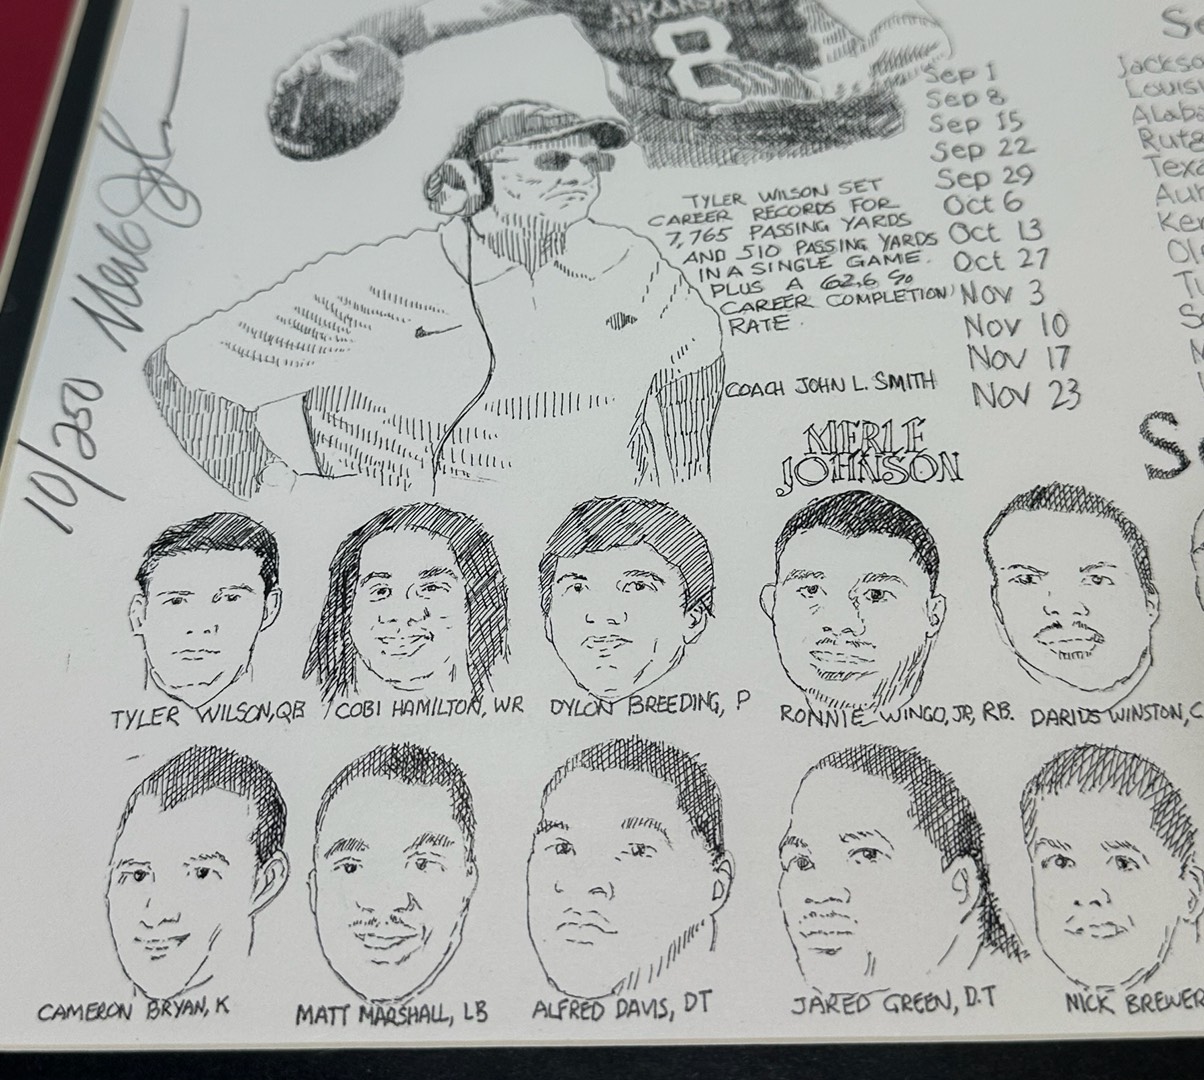 ARKANSA
8
Sep 1
Sep 8
Sep 15
Sep 22
Sep 29
Oct 6
Oct 13
Oct 27
Nov 3
Nov 10
Nov 17
Nov 23
Jackso
Louis
Alaba
Rutg
Texa
Au
Ke
TYLER WILSON SET
CAREER RECORDS FOR
7,765 PASSING YARDS
AND 510 PASSING YARDS
IN A SINGLE GAME.
PLUS A 62.6 %
CAREER COMPLETION
RATE.
COACH JOHN L. SMITH
MERLE
JOHNSON
10/250 Merle Johnson
TYLER WILSON, QB
COBI HAMILTON, WR
DYLON BREEDING, P
RONNIE WINGO, JR, RB.
DARIUS WINSTON, C
CAMERON BRYAN, K
MATT MARSHALL, LB
ALFRED DAVIS, DT
JARED GREEN, D.T
NICK BREWER